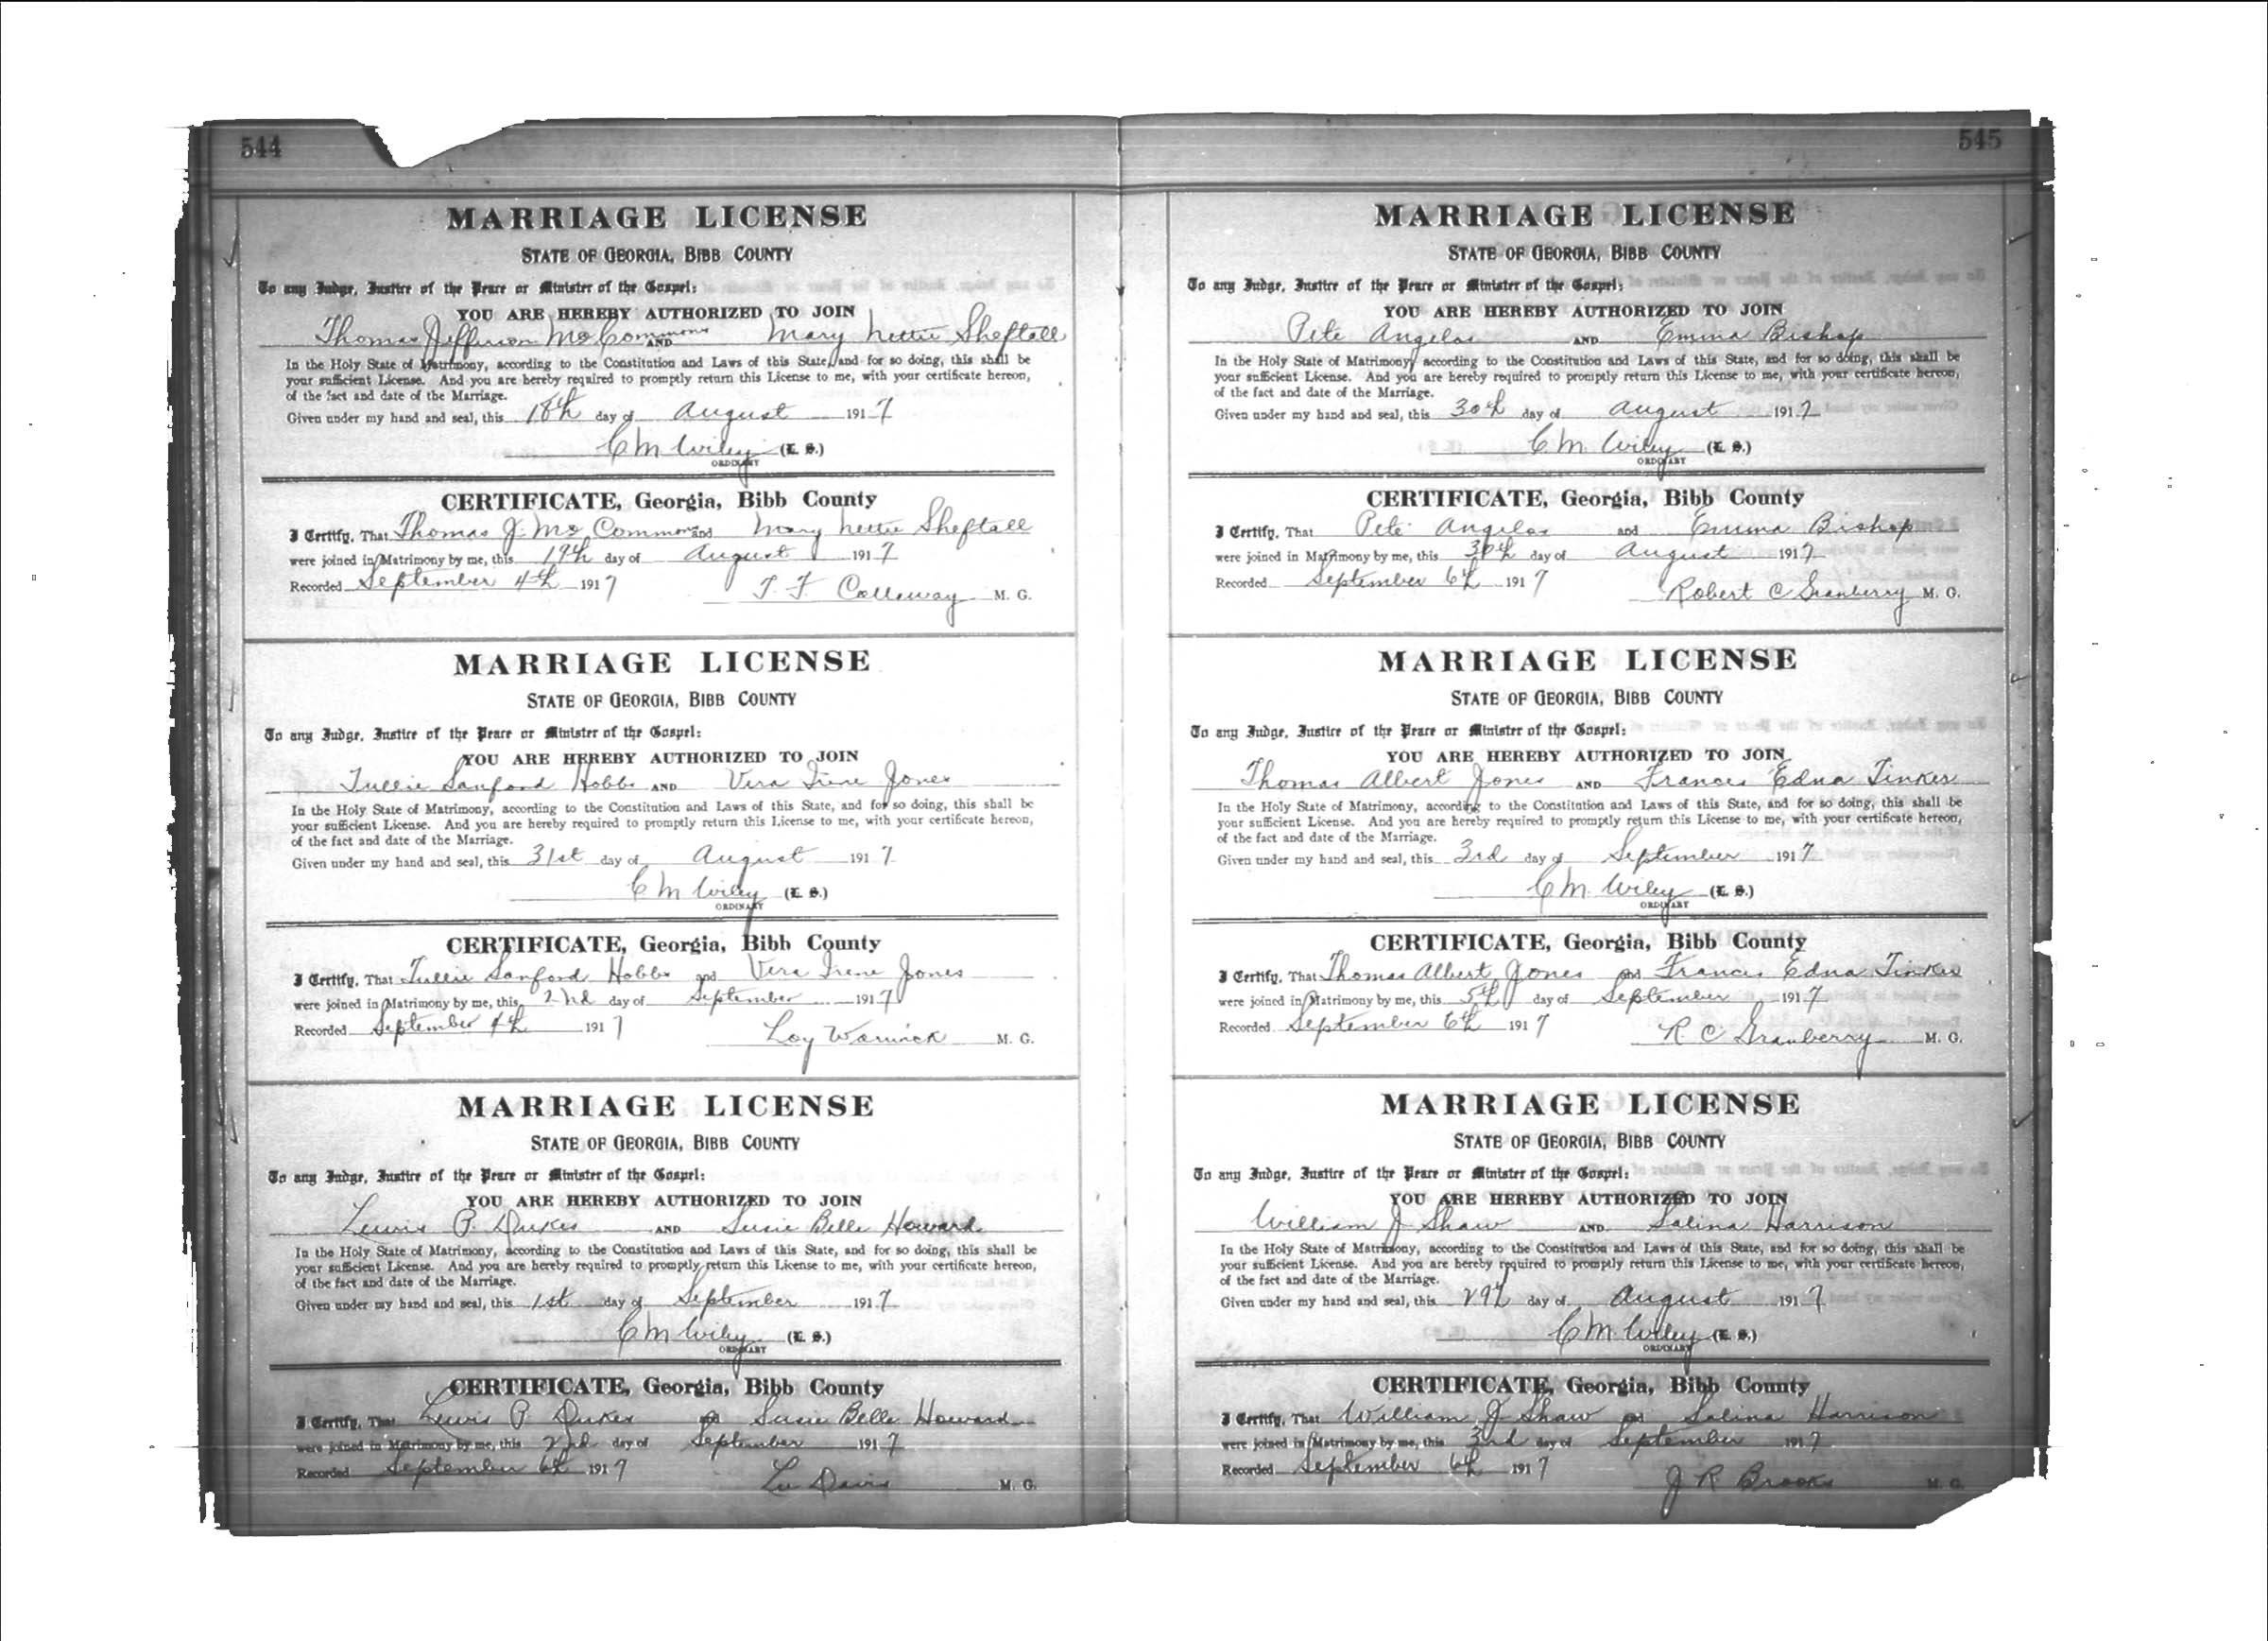 544
MARRIAGE LICENSE
STATE OF GEORGIA, BIBB COUNTY
To any Judge, Justice of the Peace or Minister of the Gospel:
YOU ARE HEREBY AUTHORIZED TO JOIN
Thomas Jefferson McCommons AND Mary Nettie Sheftall
In the Holy State of Matrimony, according to the Constitution and Laws of this State, and for so doing, this shall be
your sufficient License. And you are hereby required to promptly return this License to me, with your certificate hereon,
of the fact and date of the Marriage.
Given under my hand and seal, this 18th day of August 1917
C M Wiley (L. S.)
ORDINARY
CERTIFICATE, Georgia, Bibb County
I Certify, That Thomas J. McCommons and Mary Nettie Sheftall
were joined in Matrimony by me, this 19th day of August 1917
Recorded September 4th 1917 T. F. Callaway M. G.
MARRIAGE LICENSE
STATE OF GEORGIA, BIBB COUNTY
To any Judge, Justice of the Peace or Minister of the Gospel:
YOU ARE HEREBY AUTHORIZED TO JOIN
Tullie Sanford Hobbs AND Vera Irene Jones
In the Holy State of Matrimony, according to the Constitution and Laws of this State, and for so doing, this shall be
your sufficient License. And you are hereby required to promptly return this License to me, with your certificate hereon,
of the fact and date of the Marriage.
Given under my hand and seal, this 31st day of August 1917
C M Wiley (L. S.)
ORDINARY
CERTIFICATE, Georgia, Bibb County
I Certify, That Tullie Sanford Hobbs and Vera Irene Jones
were joined in Matrimony by me, this 2nd day of September 1917
Recorded September 4th 1917 Loy Warwick M. G.
MARRIAGE LICENSE
STATE OF GEORGIA, BIBB COUNTY
To any Judge, Justice of the Peace or Minister of the Gospel:
YOU ARE HEREBY AUTHORIZED TO JOIN
Lewis P. Dukes AND Susie Belle Howard
In the Holy State of Matrimony, according to the Constitution and Laws of this State, and for so doing, this shall be
your sufficient License. And you are hereby required to promptly return this License to me, with your certificate hereon,
of the fact and date of the Marriage.
Given under my hand and seal, this 1st day of September 1917
C M Wiley (L. S.)
ORDINARY
CERTIFICATE, Georgia, Bibb County
I Certify, That Lewis P Dukes and Susie Belle Howard
were joined in Matrimony by me, this 2nd day of September 1917
Recorded September 6th 1917 Davis M. G.
545
MARRIAGE LICENSE
STATE OF GEORGIA, BIBB COUNTY
To any Judge, Justice of the Peace or Minister of the Gospel:
YOU ARE HEREBY AUTHORIZED TO JOIN
Pete Angelos AND Emma Bishop
In the Holy State of Matrimony, according to the Constitution and Laws of this State, and for so doing, this shall be
your sufficient License. And you are hereby required to promptly return this License to me, with your certificate hereon,
of the fact and date of the Marriage.
Given under my hand and seal, this 30th day of August 1917
C. M. Wiley (L. S.)
ORDINARY
CERTIFICATE, Georgia, Bibb County
I Certify, That Pete Angelos and Emma Bishop
were joined in Matrimony by me, this 30th day of August 1917
Recorded September 6th 1917 Robert C Granberry M. G.
MARRIAGE LICENSE
STATE OF GEORGIA, BIBB COUNTY
To any Judge, Justice of the Peace or Minister of the Gospel:
YOU ARE HEREBY AUTHORIZED TO JOIN
Thomas Albert Jones AND Frances Edna Tinker
In the Holy State of Matrimony, according to the Constitution and Laws of this State, and for so doing, this shall be
your sufficient License. And you are hereby required to promptly return this License to me, with your certificate hereon,
of the fact and date of the Marriage.
Given under my hand and seal, this 3rd day of September 1917
C. M. Wiley (L. S.)
ORDINARY
CERTIFICATE, Georgia, Bibb County
I Certify, That Thomas Albert Jones and Frances Edna Tinker
were joined in Matrimony by me, this 5th day of September 1917
Recorded September 6th 1917 R. C Granberry M. G.
MARRIAGE LICENSE
STATE OF GEORGIA, BIBB COUNTY
To any Judge, Justice of the Peace or Minister of the Gospel:
YOU ARE HEREBY AUTHORIZED TO JOIN
William J Shaw AND Salina Harrison
In the Holy State of Matrimony, according to the Constitution and Laws of this State, and for so doing, this shall be
your sufficient License. And you are hereby required to promptly return this License to me, with your certificate hereon,
of the fact and date of the Marriage.
Given under my hand and seal, this 29th day of August 1917
C M. Wiley (L. S.)
ORDINARY
CERTIFICATE, Georgia, Bibb County
I Certify, That William J Shaw and Salina Harrison
were joined in Matrimony by me, this 3rd day of September 1917
Recorded September 6th 1917 J R Brooks M. G.